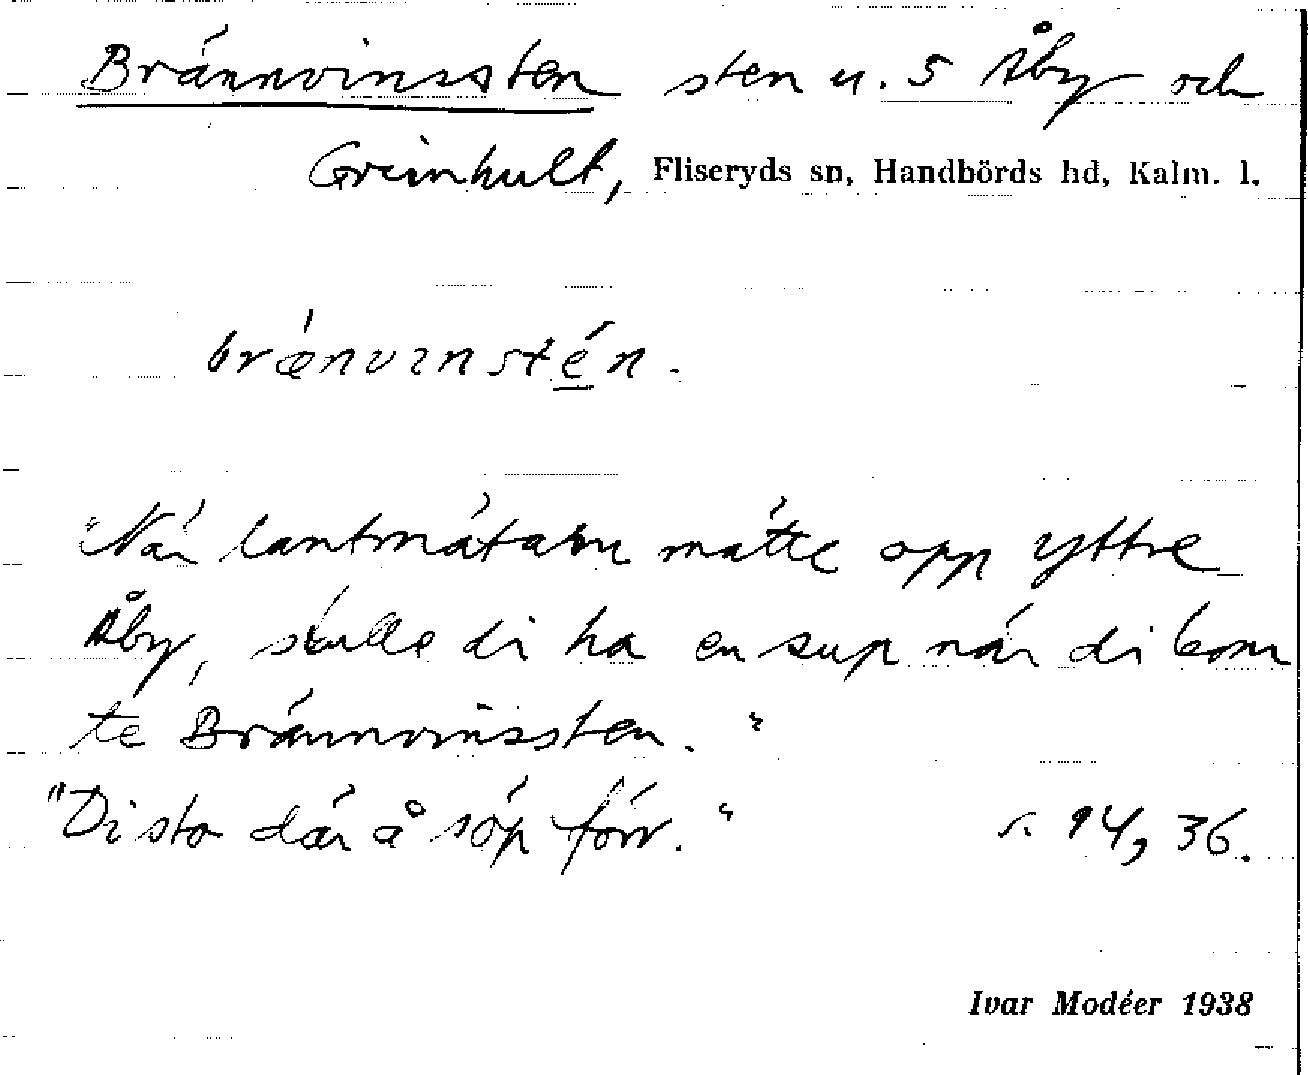 Brännvinssten sten u. 5 Åby och
Grimhult, Fliseryds sn, Handbörds hd, Kalm. l.
brǽnvɩnstén.
"När lantmätarne mätte opp yttre
Åby, skulle di ha en sup när di kom
te Brännvinssten."
"Di sto där å söp förr." s. 94, 36.
Ivar Modéer 1938